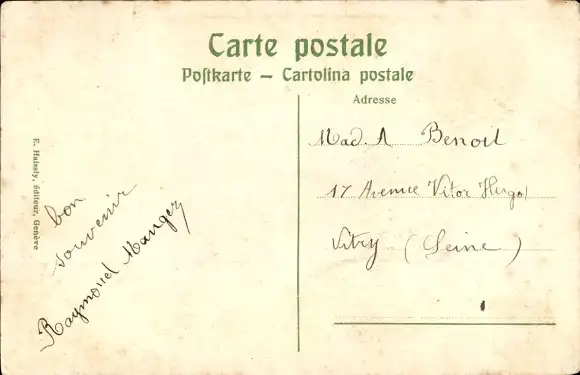 Carte postale
Poſtkarte – Cartolina postale
Adresse
Mad. A Benoit
17 Avenue Vitor Hugo
Vitry (Seine)
bon
souvenir
Raymond Manger
E. Haissly, éditeur, Genève